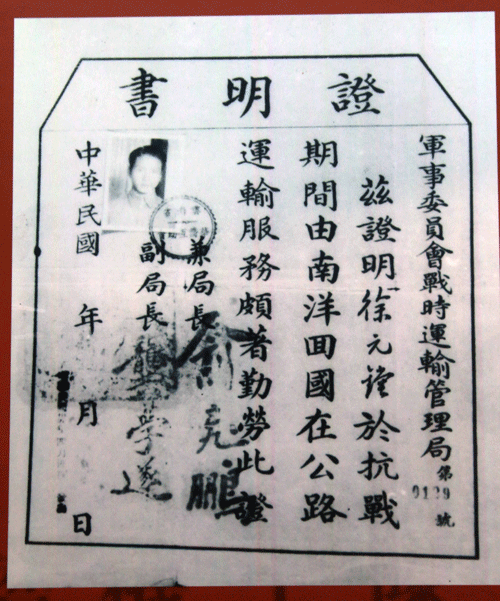 證明書
軍事委員會戰時運輸管理局第0129號
茲證明徐元瑾於抗戰
期間由南洋回國在公路
運輸服務頗著勤勞此證
兼局長俞飛鵬
副局長龔學遂
中華民國 年 月 日